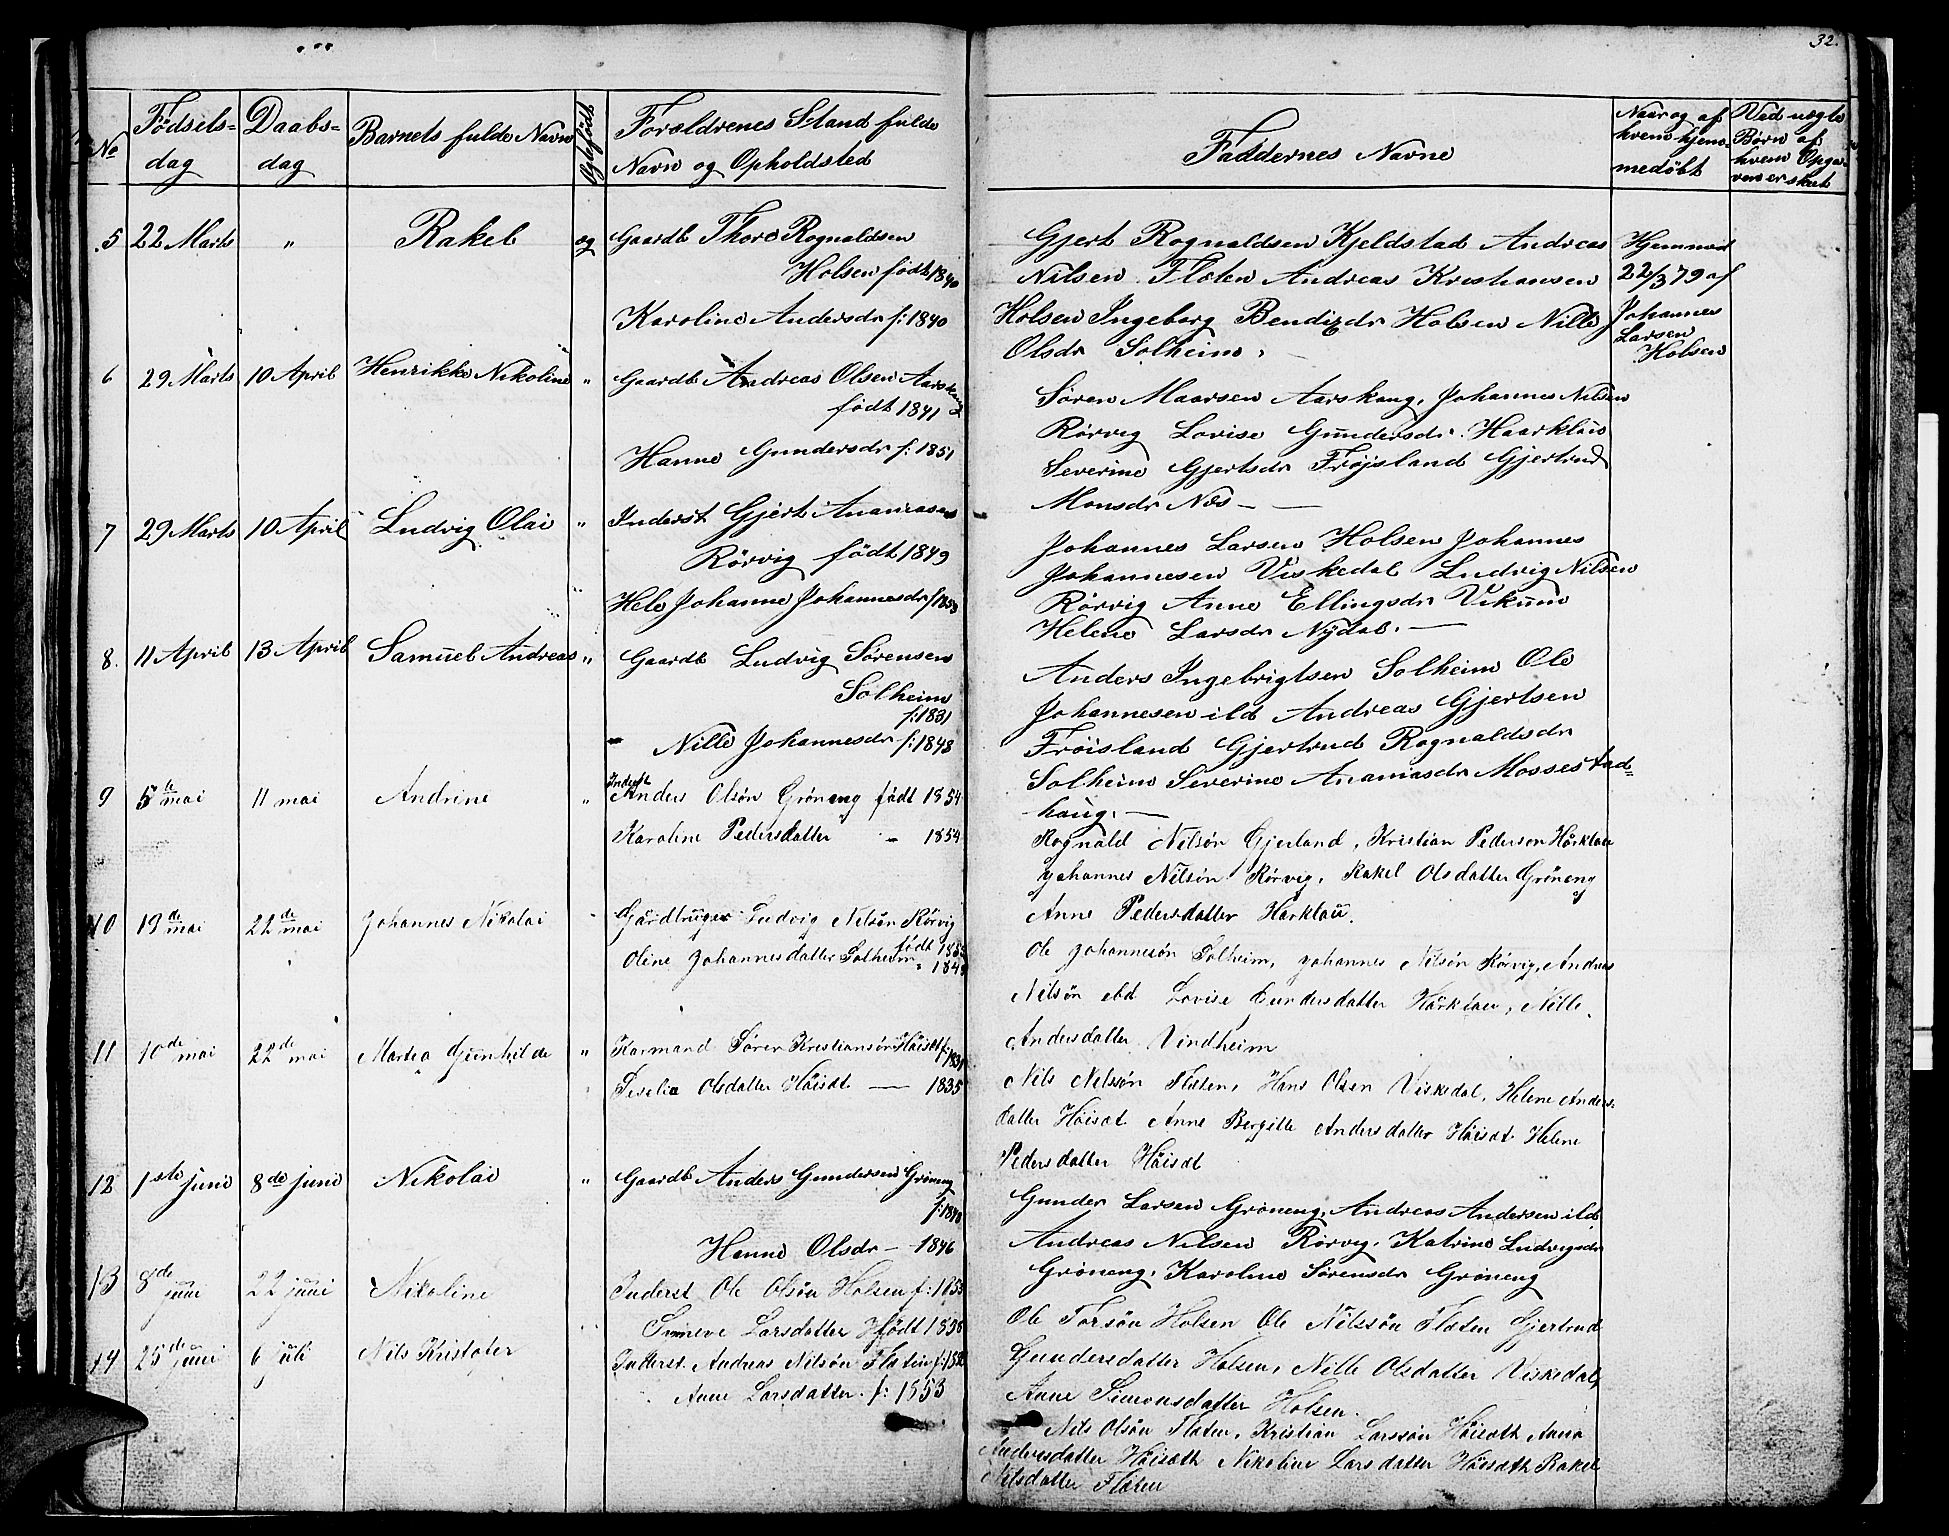 32.
No
Födsels-
dag
Daabs-
dag
Barnets fulde Navn
Ogtefödt
Foræeldrenes Stand fulde
Navn og Opholdsted
Faddernes Navne
Naar og af
hvem hjem-
medöbt
Ved uægte
Børn af
hvem Opga-
ven er skeet
5 22 Marts " Rakel og Gaardb Thore Rognaldsen
Holsen födt 1840
Karoline Andersdr f: 1840
Gjert Rognaldsen Kjeldstad Andreas
Nilsen Flaten Andreas Kristiansen
Holsen Ingeborg Bendixdr Holsen Nille
Olsdr Solheim.
Hjemmed
22/3 79 af
Johannes
Larsen
Holsen
6 29 Marts 10 April Henrikke Nikoline " Gaardb Andreas Olsen Aarskaug
födt 1841
Hanne Gundersdr f: 1851
Sören Maarsen Aarskaug, Johannes Nilsen
Rörvig Lovise Gundersdr. Haarklau
Severine Gjertsdr Fröjsland Gjertrud
Monsdr Næs —
7 29 Marts 10 April Ludvig Olai " Inderst Gjert Ananiasen
Rörvig födt 1849
Hele Johanne Johannesdr f 1853
Johannes Larsen Holsen Johannes
Johannesen Viskedal Ludvig Nilsen
Rörvig Anne Ellingsdr Vikum
Helene Larsdr Nydal. —
8. 11 April 13 April Samuel Andreas " Gaardb Ludvig Sörensen
Solheim
f: 1831
Nille Johannesdr f: 1848
Anders Ingebrigtsen Solheim Ole
Johannesen ild Andreas Gjertsen
Fröisland Gjertrud Rognaldsdr
Solheim Severine Ananiasdr Mossestad=
haug. —
9 5te mai 11 mai Andrine " Inderst
Anders Olsön Gröneng födt 1854
Karoline Pedersdatter " 1854
Rognald Nilsön Gjerland, Kristian Pederson Hårklau
Johannes Nilsön Rörvig, Rakel Olsdatter Gröneng
Anne Pedersdatter Harklau.
10 19de mai 22de mai Johannes Nikolai Gårdbruger Ludvig Nilsön Rörvig
födt 1835
Oline Johannesdatter Solheim " 1848
Ole Johannesön Solheim, Johannes Nilsön Rörvig, Andreas
Nilsön ebd Lovise Gundersdatter Harklau, Nille
Andersdatter Vindheim
11 10de mai 22de mai Martea Gunhilde " Karmand Sören Kristiansön Höisæt f: 1831
Siselia Olsdatter Höisæt — 1835
Nils Nilssön Flaten, Hans Olsen Viskedal, Helene Anders-
datter Höisæt Anne Bergitte Andersdatter Höisæt Helene
Pedersdatter Höisæt
12 1ste juni 8de juni Nikolai " Gaardb Anders Gundersen Gröneng
f: 1840
Hanne Olsdr — 1846
Gunder Larsen Gröneng, Andreas Andersen ild
Andreas Nilsen Rörvig, Katrine Ludvigsdr
Gröneng, Karoline Sörensdr Gröneng
13 8de juni 22 juni Nikoline Inderst Ole Olsön Holsen f: 1853
Synneve Larsdatter födt 1838
Ole Torsön Holsen Ole Nilssön Flaten Gjertrud
Gundersdatter Holsen, Nille Olsdatter Viskedal,
Anne Simonsdatter Holsen.
14 25de juni 6 juli Nils Kristofer Inderst. Andreas Nilsön Flaten
Anne Larsdatter. f: 1853
Nils Olsön Flaten, Kristian Larssön Höisæth Anna
Andersdatter Höisæth Nikoline Larsdatter Höisæth Rakel
Nilsdatter Flaten